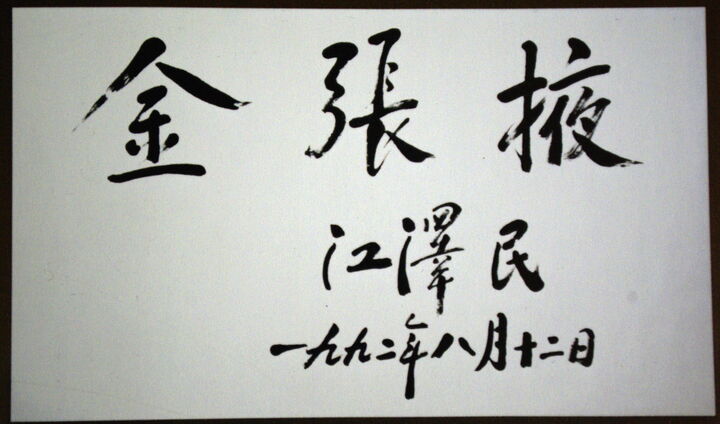 金張掖
江澤民
一九九二年八月十二日